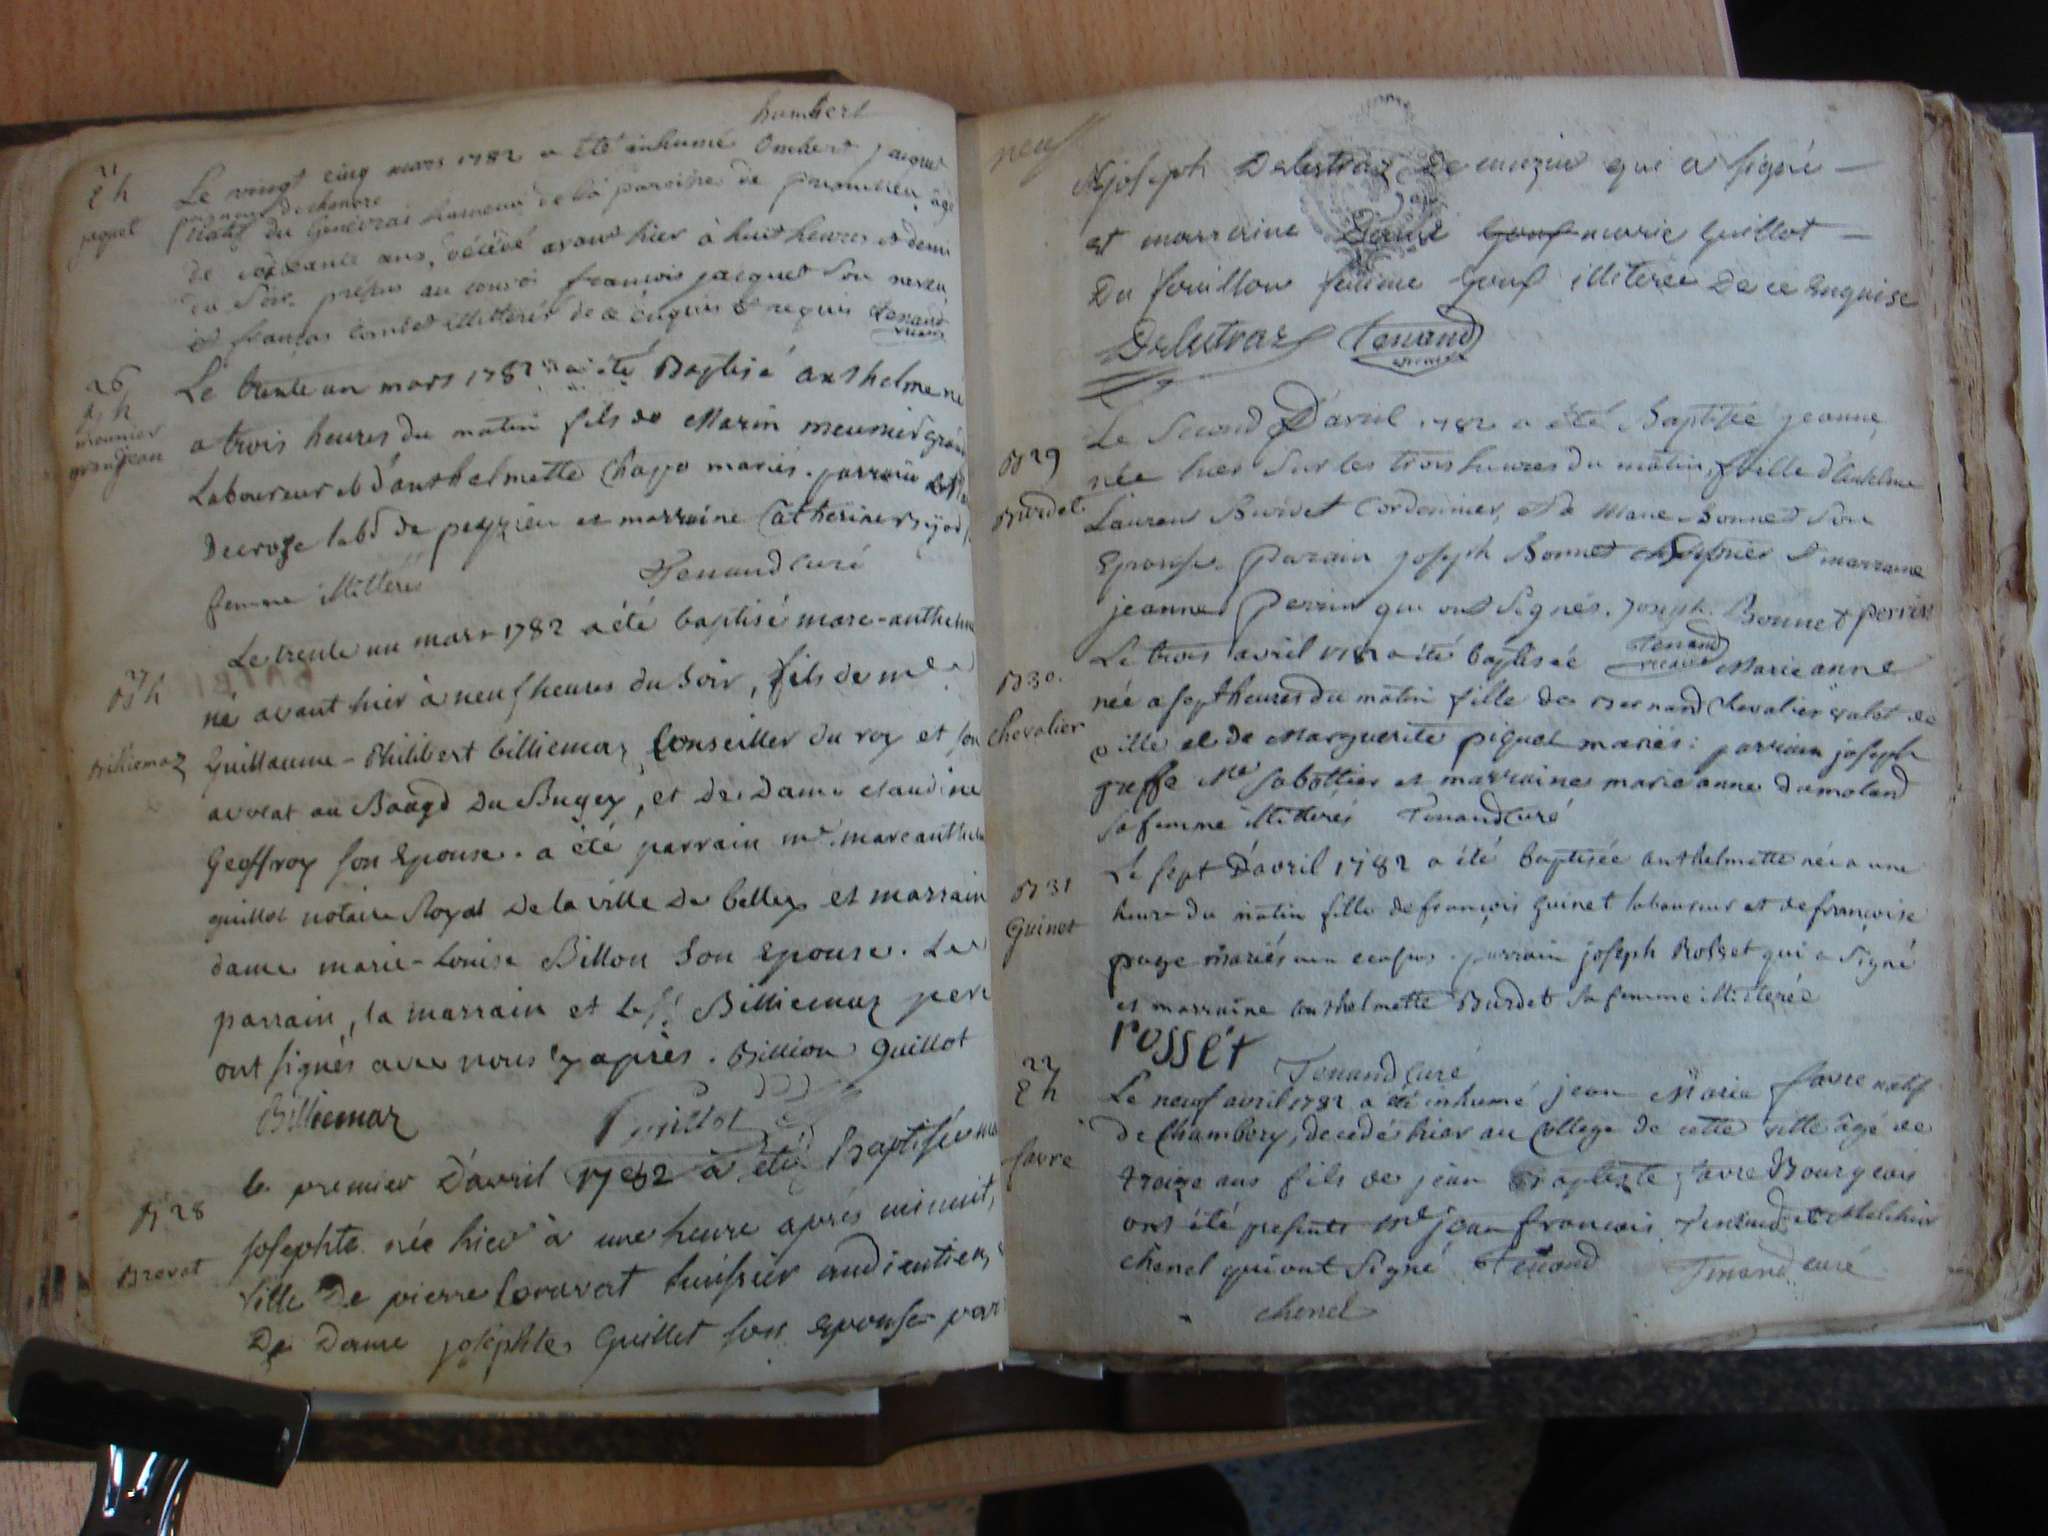 humbert
21
h
jaquet
Le vingt cinq mars 1782 a été inhumé Ombert jacquet
natif du Genevrai hameau de la paroisse de âgé
de soixante ans, décédé avant hier à huit heures et demi
du soir. présens au convoi francois jacquet son neveu
et françois Combet illitterés de ce enquis & requis Tenand
vicaire
26
h
meunier
grandjean
Le trente un mars 1782 a été Baptisé anthelme né
a trois heures du matin fils de Marin meunier
Laboureur et d'anthelmette Chapo mariés. parrain
Decroze lab.r de peyzieu et marraine Catherine
femme illittérés Tenand curé
27
h
Billiemaz
Le trente un mars 1782 a été baptisé marc-anthelme
né avant hier à neuf heures du soir, fils de m.e
Guillaume-Philibert billiemaz Conseiller du roy et son
avocat au Baagd Du Bugey, et De Dame claudine
Geoffroy son Epouse. a été parrain m.e marcanthelme
guillot notaire Royal De la ville De belley et marrain
dame marie-Louise Billon son Epouse. Le
parrain, la marrain et le s.r Billiemaz per
ont signés avec nous cy après. Billion guillot
Billiemaz Guillot
B 28
Bravet
le premier D'avril 1782 a été Baptisée
josephte née hier à une heure après minuit,
fille De pierre bravet huissier audientier,
De Dame josephte Guillet son Epouse par
neuf
joseph Delestraz De muzin qui a signé
et marraine marie Guillot
Du fouillou femme illiterée De ce Enquise
Delestraz Tenand
vicaire
B 29
Burdet
Le Second D'avril 1782 a été baptisée jeanne
née hier sur les trois heures du matin, fille d'Anthelme
Laurent Burdet Cordonnier, et de Marie Bonnet son
Epouse. Parain joseph Bonnet et marraine
jeanne Perrin qui ont signés. joseph Bonnet perrin
Tenand
vicaire
B 30.
chevalier
Le trois avril 1782 a été baptisée Marie anne
née a sept heures du matin fille de Bernard Chevalier valet de
ville et de Marguerite piquet mariés: parrain joseph
greffe M.e sabottier et marraine marie anne damoland
sa femme illittérés Tenand Curé
B 31
Guinet
Le sept D'avril 1782 a été baptisée anthelmette née a une
heure du matin fille de françois Guinet laboureur et de francoise
page mariés parrain joseph Rosset qui a signé
et marraine anthelmette Burdet sa femme illiterée
rosset
Tenand Curé
22
h
favre
Le neuf avril 1782 a été inhumé jean Marie favre natif
de Chambery, decedé hier au College de cette ville âgé de
traize ans fils de jean Baptiste favre Bourgeois
ont été presents M.e jean francois Tenand et Melchior
chenel qui ont signé Tenand Tenand curé
chenel